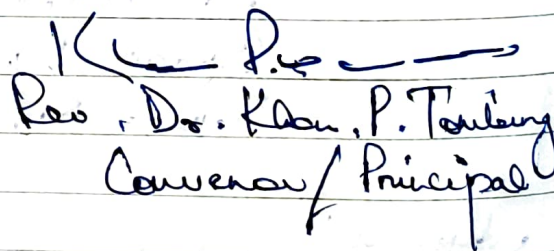 Rev. Dr. Khan. P. Tombing
Convenor/Principal